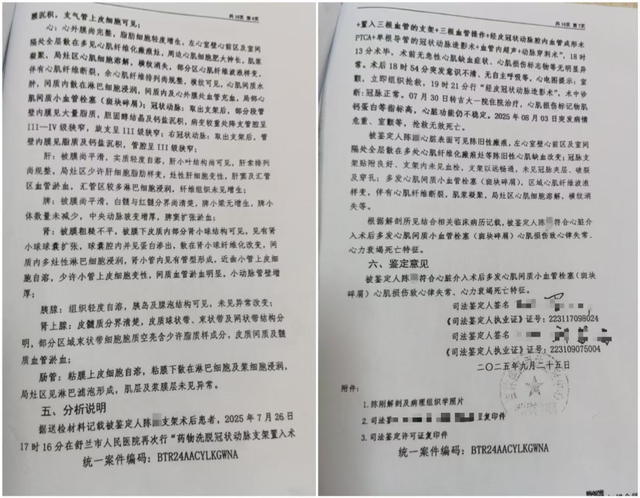 共10页 第6页
膜沉积，支气管上皮细胞可见；
心：心外膜尚完整，脂肪细胞轻度增生，左心室壁心前区及室间
隔处全层数在多见心肌纤维化瘢痕灶，周边心肌细胞肥大伸长，肌浆
凝聚，局灶区心肌细胞溶解，横纹消失，部分区心肌纤维波浪样变，
伴有心肌纤维断裂，余心肌纤维排列尚规整，横纹可见，心肌间质水
肿，间质内散在淋巴细胞浸润，间质内及心外膜处血管充血，局部心
肌间质小血管栓塞（斑块碎屑）；冠状动脉：取出支架后，部分段管
壁内膜见大量脂质，胆固醇结晶及钙盐沉积，病变较重处降支管腔呈
III—IV级狭窄，旋支呈III级狭窄；右冠状动脉：取出支架后，管
壁内膜见脂质及钙盐沉积，管腔呈III级狭窄；
肝：被膜尚平滑，实质轻度自溶，肝小叶结构尚可见，肝索排列
尚规整，局灶区少许肝细胞脂肪样变，灶性肝细胞变性，肝窦及汇管
区血管淤血，汇管区较多淋巴细胞浸润，纤维组织未见增生；
脾：被膜尚平滑，白髓与红髓分界尚清楚，脾小梁无增生，脾小
体数量未减少，中央动脉玻变增厚，脾窦扩张淤血；
肾：被膜粗糙不平，被膜下皮质内部分肾小球结构可见，见有肾
小球球囊扩张，球囊腔内并见蛋白渗出，散在肾小球纤维化改变，间质
内多灶性淋巴细胞浸润，肾小管内见有管型形成，近曲小管上皮细
胞自溶，少许小管上皮细胞变性，间质血管淤血明显，小动脉管壁增
厚；
胰腺：组织轻度自溶，胰岛及腺泡结构可见，未见异常改变；
肾上腺：皮髓质分界清楚，皮质球状带、束状带及网状带结构分
明，部分区域束状带细胞胞质空亮含少许脂质样成分，皮质间质及髓
质血管淤血；
肠管：粘膜上皮自溶，粘膜下散在淋巴细胞及浆细胞浸润，
局灶区见淋巴滤泡形成，肌层及浆膜层未见异常。
五、分析说明
据送检材料记载被鉴定人陈 支架术后患者，2025年7月26日
17时16分在舒兰市人民医院再次行“药物洗脱冠状动脉支架置入术
统一案件编码：BTR24AACYLKGWNA
共10页 第7页
+置入三根血管的支架+三根血管操作+经皮冠状动脉腔内血管成形术
PTCA+单根导管的冠状动脉造影术+血管内超声+动脉穿刺术”，18时
13分术毕，术前无急性心肌缺血症状、心肌损伤标志物等无明显异
常。术后18时54分突发意识不清、无自主呼吸等，心电图提示：室
颤，立即组织抢救，19时21分行“经皮冠状动脉造影术”，术中诊
断：冠脉正常。07月30日转吉大一院住院治疗，心肌损伤标记物肌
钙蛋白等指标高，心脏功能仍不稳定，2025年08月03日突发病情
危重、室颤等，抢救无效死亡。
被鉴定人陈 心脏表面可见陈旧性瘢痕，左心室壁心前区及室间
隔处全层散在多处心肌纤维化瘢痕灶等陈旧性心肌缺血改变；冠脉支
架贴附良好、支架内未见血栓，支架以远畅通，未见冠脉夹层、破裂
及穿孔；多发心肌间质小血管栓塞（斑块碎屑），区域心肌纤维波浪
样变，伴有心肌纤维断裂，肌浆凝聚，局灶区心肌细胞溶解，横纹消
失等。
根据解剖所见结合相关临床病历记载，被鉴定人陈 符合心脏介
入术后多发心肌间质小血管栓塞（斑块碎屑）心肌损伤致心律失常、
心力衰竭死亡特征。
六、鉴定意见
被鉴定人陈 符合心脏介入术后多发心肌间质小血管栓塞（斑块
碎屑）心肌损伤致心律失常、心力衰竭死亡特征。
司法鉴定人签名
《司法鉴定人执业证》证号：223117098024
司法鉴定人签名
《司法鉴定人执业证》证号：223109075004
二〇二五年九月二十五日
附件：
1. 陈刚解剖及病理组织学照片
2. 司法鉴 复印件
3. 司法鉴定许可证复印件
统一案件编码：BTR24AACYLKGWNA